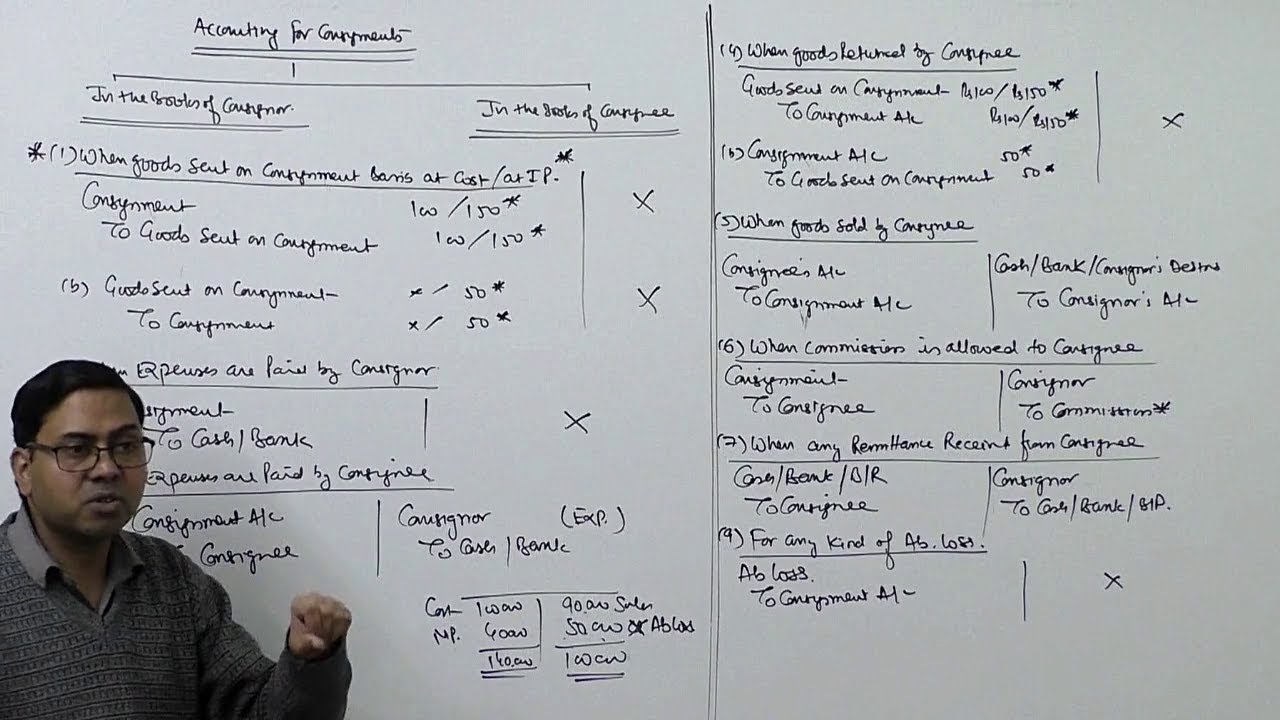 Accounting for Consignments
In the Books of Consignor.
In the Books of Consignee
* (1) When goods sent on Consignment Basis at Cost/at IP. *
Consignment 100 / 150* X
To Goods Sent on Consignment 100 / 150*
(b) Goods Sent on Consignment x / 50* X
To Consignment x / 50*
Expenses are Paid by Consignor
To Cash/Bank X
Expenses are Paid by Consignee
Consignment A/c
Consignee
Consignor (Exp.)
To Cash/Bank
Cost 10000 90,000 Sales
NP. 40,000 Ab loss
140,000 100000
(4) When goods Returned by Consignee
Goods Sent on Consignment Rs100/Rs150*
To Consignment A/c Rs100/Rs150* X
(b) Consignment A/c 50*
To Goods Sent on Consignment 50*
(5) When goods sold by Consignee
Consignee's A/c
To Consignment A/c
Cash/Bank/Consignor's
To Consignor's A/c
(6) When Commission is allowed to Consignee
Consignment
To Consignee
Consignor
To Commission*
(7) When any Remittance Receint from Consignee
Cash/Bank/B/R
To Consignee
Consignor
To Cash/Bank/B/P.
(9) For any kind of Ab. loss.
Ab loss.
To Consignment A/c X